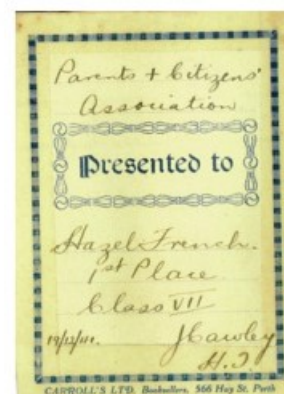 Parents + Citizens'
Association
Presented to
Hazel French.
1st Place
Class VII
JCawley
H.T
CARROLL'S LTD. Booksellers, 566 Hay St. Perth